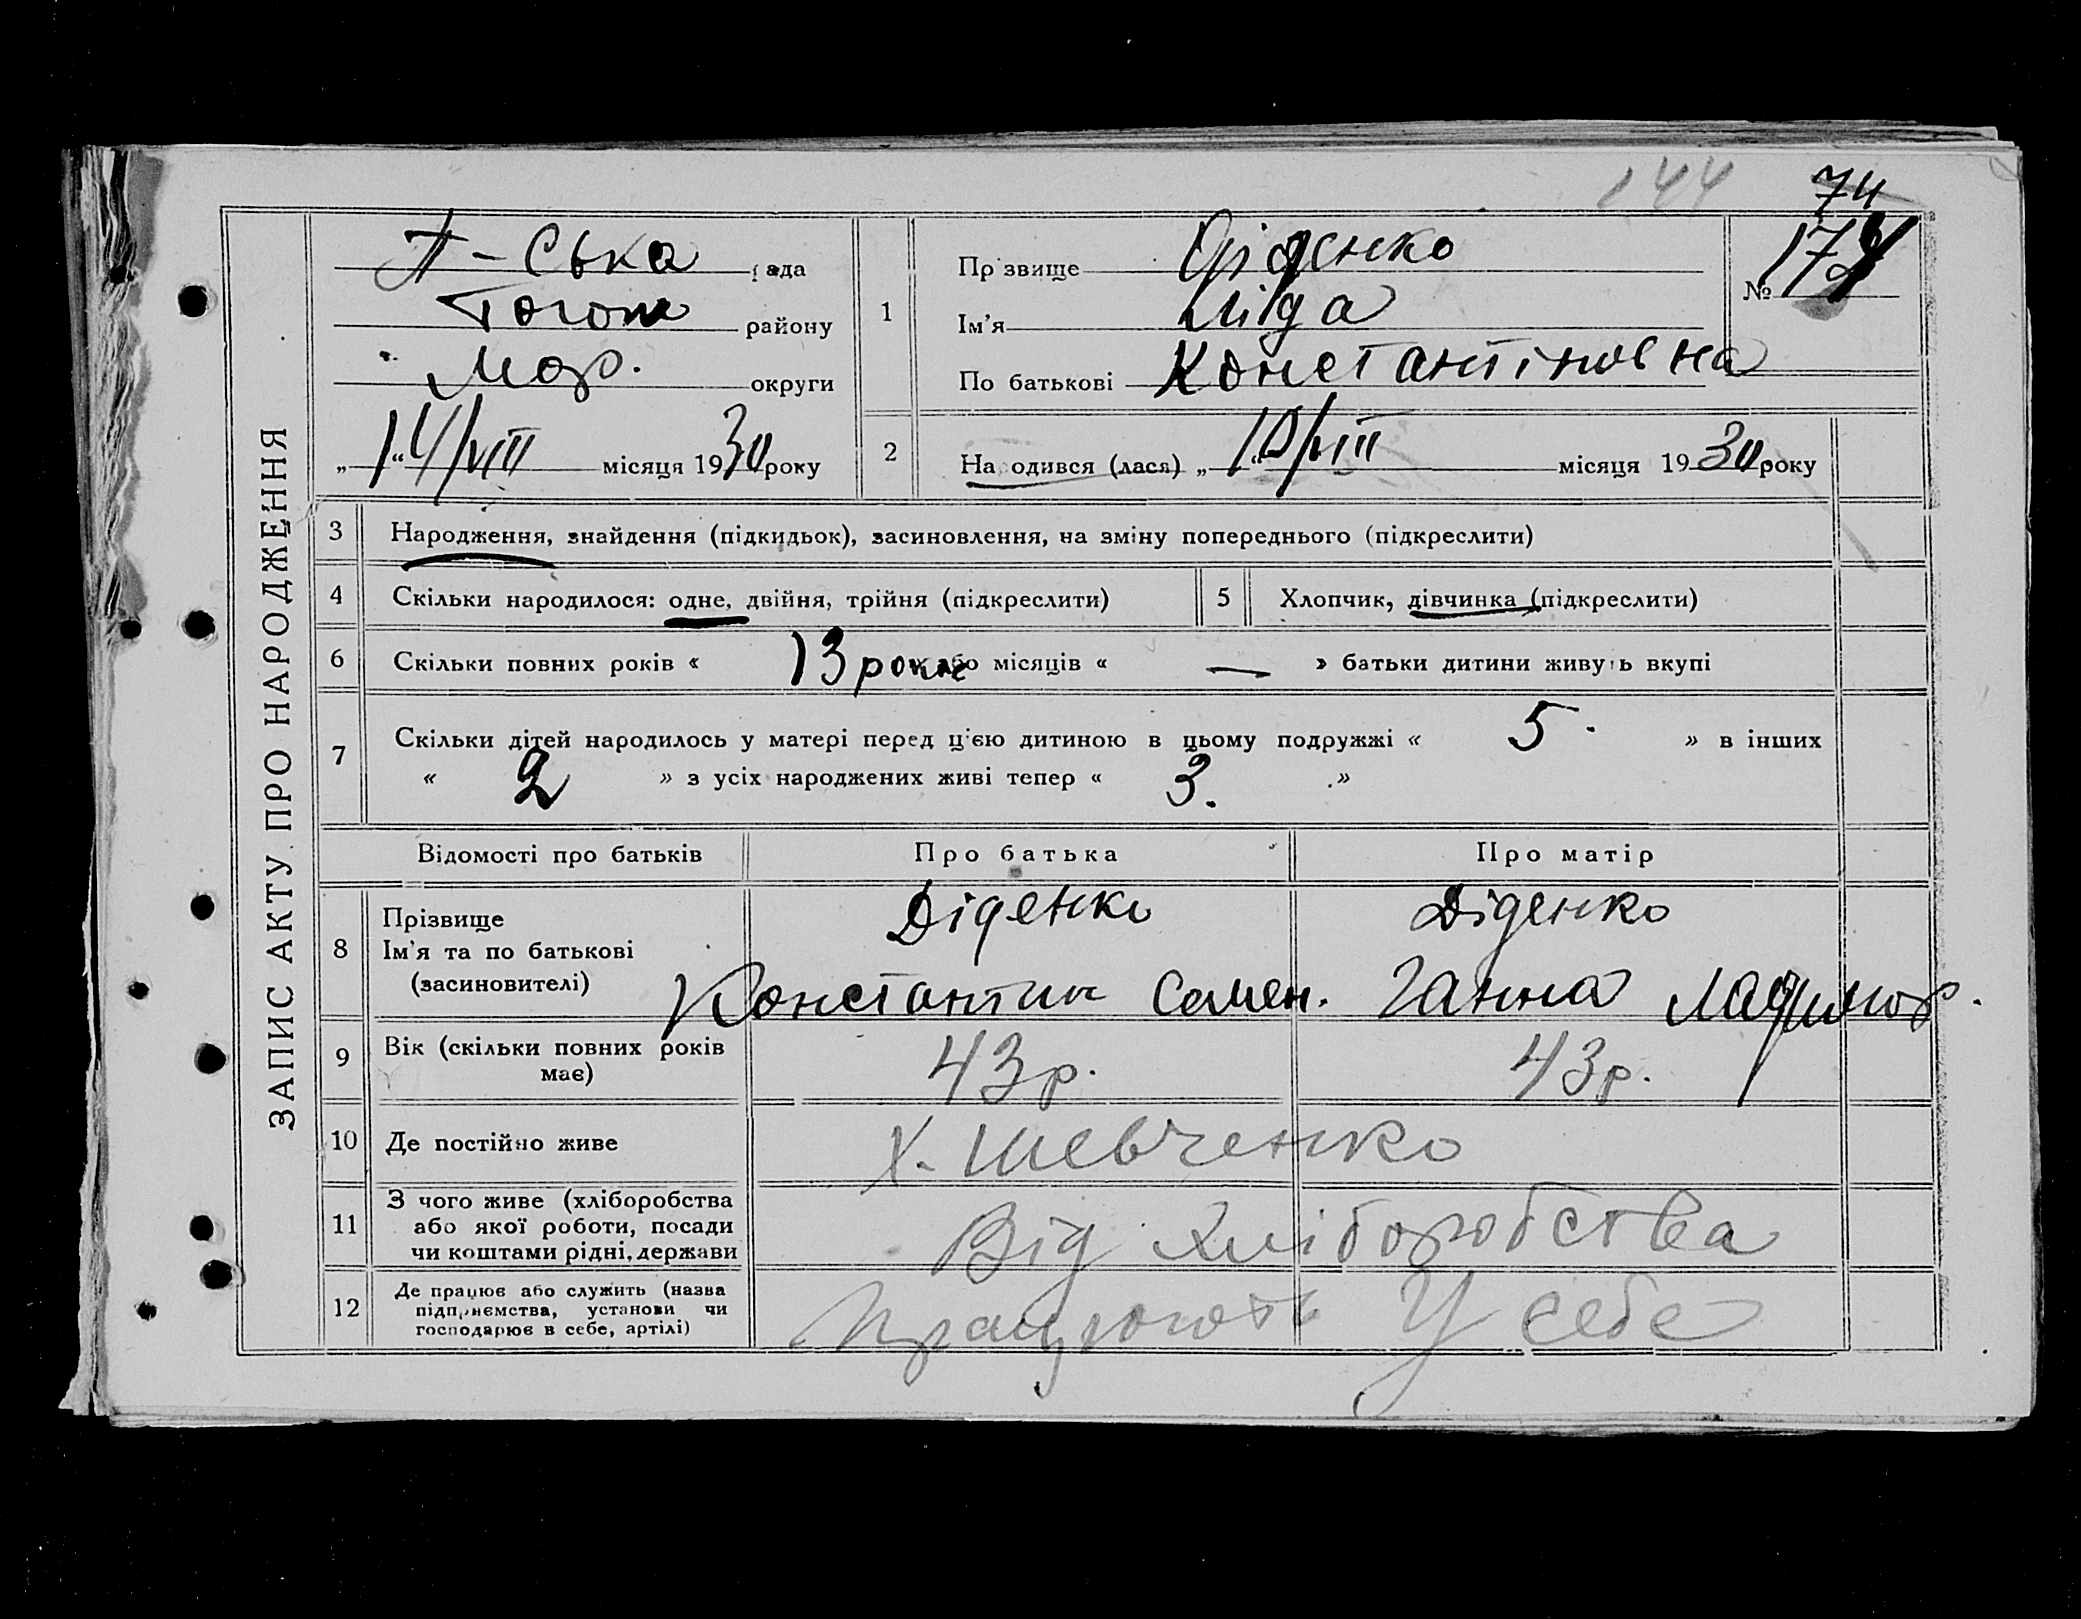 144 74
ЗАПИС АКТУ ПРО НАРОДЖЕННЯ
П-ська рада
району
Мар. округи
„14/VIII місяця 1930 року
1
Прізвище Діденко
Ім'я Ліда
По батькові Константіновна
№ 174
2
Народився (лася) „10/VIII місяця 1930 року
3 Народження, знайдення (підкидьок), засиновлення, на зміну попереднього (підкреслити)
4 Скільки народилося: одне, двійня, трійня (підкреслити)
5 Хлопчик, дівчинка (підкреслити)
6 Скільки повних років « 13 років або місяців « — » батьки дитини живуть вкупі
7 Скільки дітей народилось у матері перед цією дитиною в цьому подружжі « 5. » в інших
« 2 » з усіх народжених живі тепер « 3. »
Відомості про батьків Про батька Про матір
8 Прізвище
Ім'я та по батькові
(засиновителі)
Діденко
Константин Семен.
Діденко
Ганна
9 Вік (скільки повних років
має)
43 р. 43 р.
10 Де постійно живе Х. Шевченко
11 З чого живе (хліборобства
або якої роботи, посади
чи коштами рідні, держави
Від хліборобства
12 Де працює або служить (назва
підприємства, установи чи
господарює в себе, артілі)
Працюють У себе